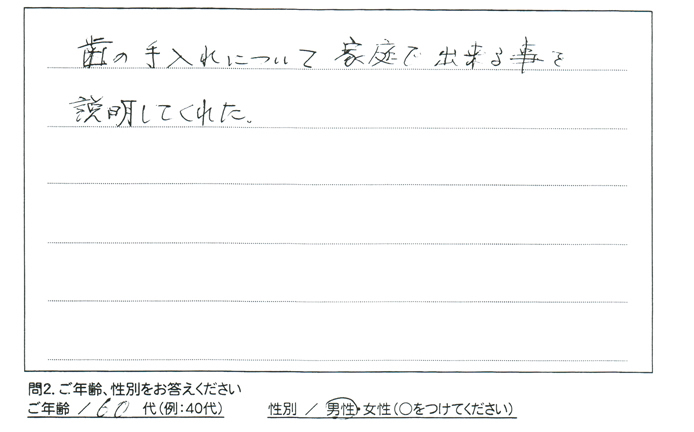 歯の手入れについて家庭で出来る事を
説明してくれた。
問2.ご年齢、性別をお答えください
ご年齢 / 60 代(例:40代) 性別 / 男性・女性(○をつけてください)